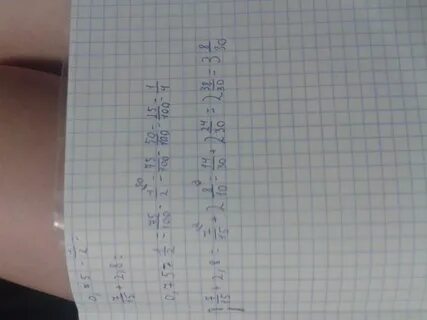 0,75 - 1/2 =
7/15 + 2,8 =
0,75 - 1/2 = 75/100 - 1/2 = 75/100 - 50/100 = 25/100 = 1/4
7/15 + 2,8 = 7/15 + 2 8/10 = 14/30 + 2 24/30 = 2 38/30 = 3 8/30